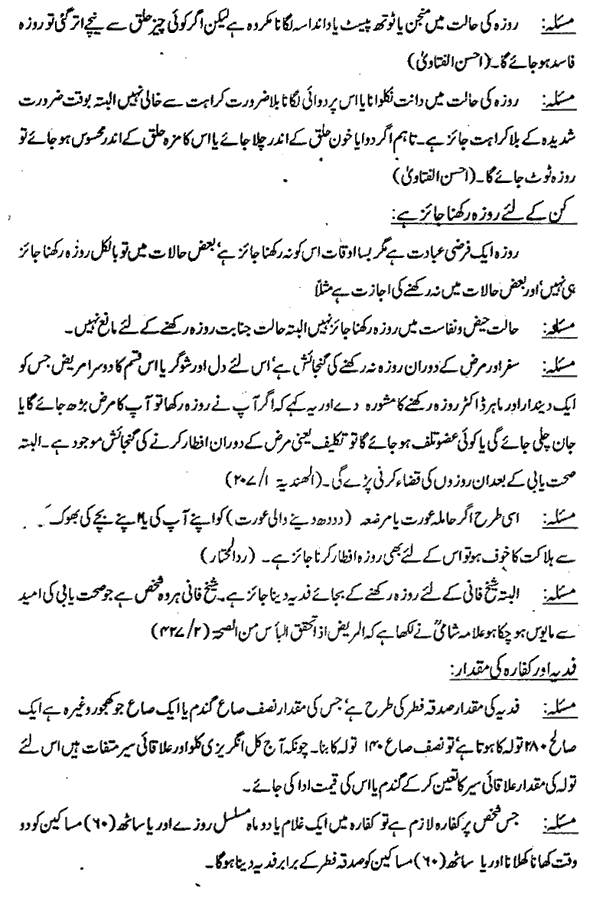 مسئلہ: روزہ کی حالت میں منجن یا ٹوتھ پیسٹ یا دانداسہ لگانا مکروہ ہے لیکن اگر کوئی چیز حلق سے نیچے اتر گئی تو روزہ
فاسد ہو جائے گا۔ (احسن الفتاویٰ)
مسئلہ: روزہ کی حالت میں دانت نکلوانا یا اس پر دوائی لگانا بلا ضرورت کراہت سے خالی نہیں البتہ بوقت ضرورت
شدیدہ کے بلا کراہت جائز ہے۔ تاہم اگر دوا یا خون حلق کے اندر چلا جائے یا اس کا مزہ حلق کے اندر محسوس ہو جائے تو
روزہ ٹوٹ جائے گا۔ (احسن الفتاویٰ)
کن کے لئے روزہ رکھنا جائز ہے:
روزہ ایک فرضی عبادت ہے مگر بسا اوقات اس کو نہ رکھنا جائز ہے، بعض حالات میں تو بالکل روزہ رکھنا جائز
ہی نہیں، اور بعض حالات میں نہ رکھنے کی اجازت ہے مثلاً
مسئلہ: حالت حیض و نفاست میں روزہ رکھنا جائز نہیں البتہ حالت جنابت روزہ رکھنے کے لئے مانع نہیں۔
مسئلہ: سفر اور مرض کے دوران روزہ نہ رکھنے کی گنجائش ہے، اس لئے دل اور شوگر یا اس قسم کا دوسرا مریض جس کو
ایک دیندار اور ماہر ڈاکٹر روزہ رکھنے کا مشورہ دے اور یہ کہے کہ اگر آپ نے روزہ رکھا تو آپ کا مرض بڑھ جائے گا یا
جان چلی جائے گی یا کوئی عضو تلف ہو جائے گا تو تکلیف یعنی مرض کے دوران افطار کرنے کی گنجائش موجود ہے۔ البتہ
صحت یابی کے بعد ان روزوں کی قضاء کرنی پڑے گی۔ (الھندیۃ ۱/ ۲۰۷)
مسئلہ: اسی طرح اگر حاملہ عورت یا مرضعہ (دودھ دینے والی عورت) کو اپنے آپ کی یا اپنے بچے کی بھوک
سے ہلاکت کا خوف ہو تو اس کے لئے بھی روزہ افطار کرنا جائز ہے۔ (ردالمحتار)
مسئلہ: البتہ شیخ فانی کے لئے روزہ رکھنے کے بجائے فدیہ دینا جائز ہے۔ شیخ فانی ہر وہ شخص ہے جو صحت یابی کی امید
سے مایوس ہو چکا ہو علامہ شامیؒ نے لکھا ہے کہ المریض اذا تحقق الیأس من الصحۃ (۲/ ۴۲۷)
فدیہ اور کفارہ کی مقدار:
مسئلہ: فدیہ کی مقدار صدقہ فطر کی طرح ہے، جس کی مقدار نصف صاع گندم یا ایک صاع جو کھجور وغیرہ ہے ایک
صالح ۲۸۰ تولہ کا ہوتا ہے، تو نصف صاع ۱۴۰ تولہ کا بنا۔ چونکہ آج کل انگریزی کلو اور علاقائی سیر متفات ہیں اس لئے
تولہ کی مقدار علاقائی سیر کا تعین کر کے گندم یا اس کی قیمت ادا کی جائے۔
مسئلہ: جس شخص پر کفارہ لازم ہے تو کفارہ میں ایک غلام یا دو ماہ مسلسل روزے اور یا ساٹھ (۶۰) مساکین کو دو
وقت کھانا کھلانا اور یا ساٹھ (۶۰) مساکین کو صدقہ فطر کے برابر فدیہ دینا ہوگا۔